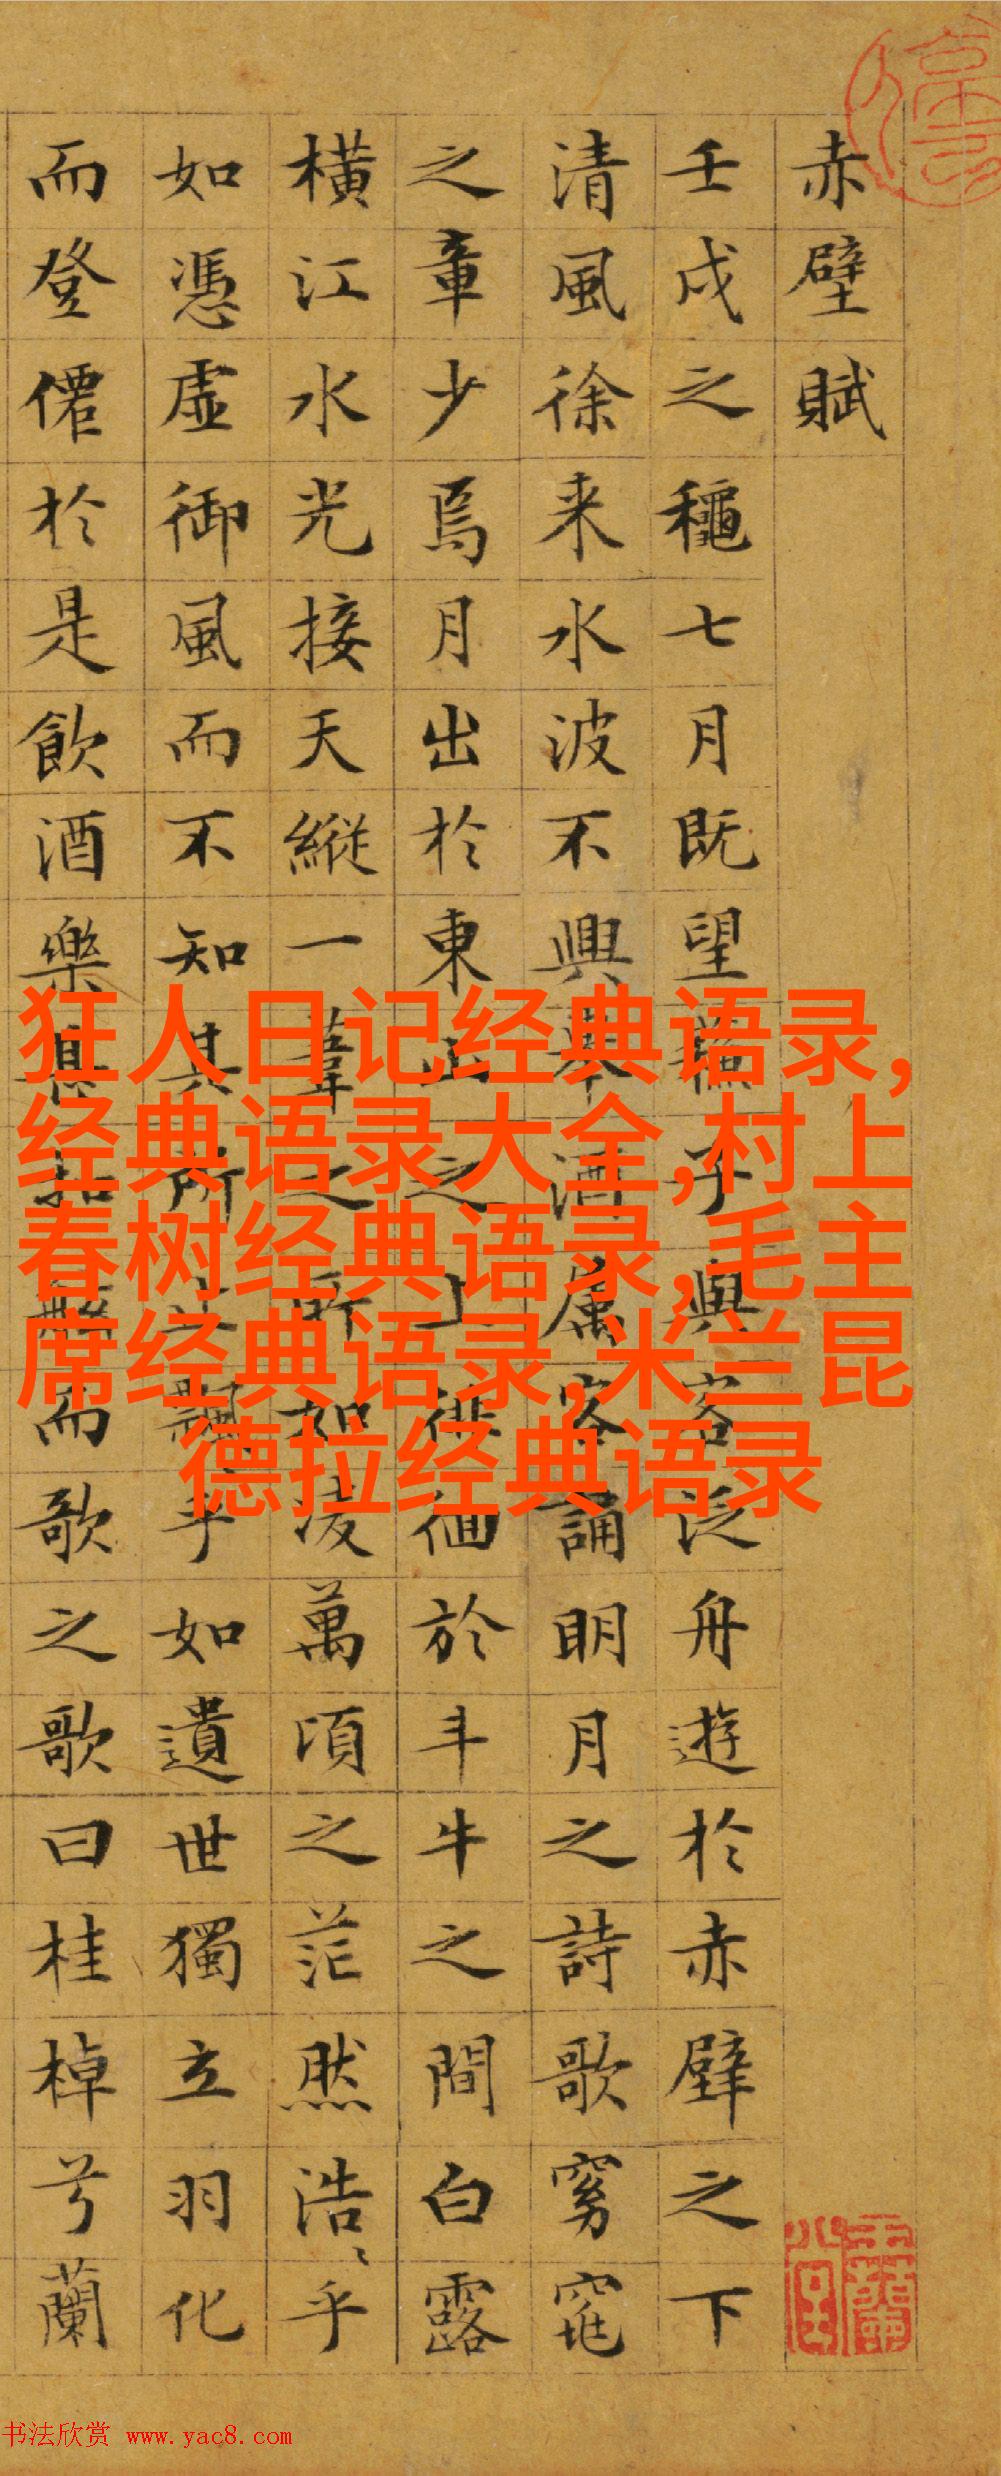 赤壁賦
壬戌之穐七月既望蘇子與客泛舟遊於赤壁之下
清風徐来水波不興舉酒属客誦眀月之詩歌窈窕
之章少焉月出於東山之上徘徊於斗牛之間白露
橫江水光接天縱一葦之所如凌萬頃之茫然浩〻乎
如憑虛御風而不知其所止飄乎如遺世獨立羽化
而登僊於是飲酒樂甚扣舷而歌之歌曰桂棹兮蘭
狂人日记经典语录,
经典语录大全,村上
春树经典语录,毛主
席经典语录,米兰昆
德拉经典语录
书法欣赏 www.yac8.com